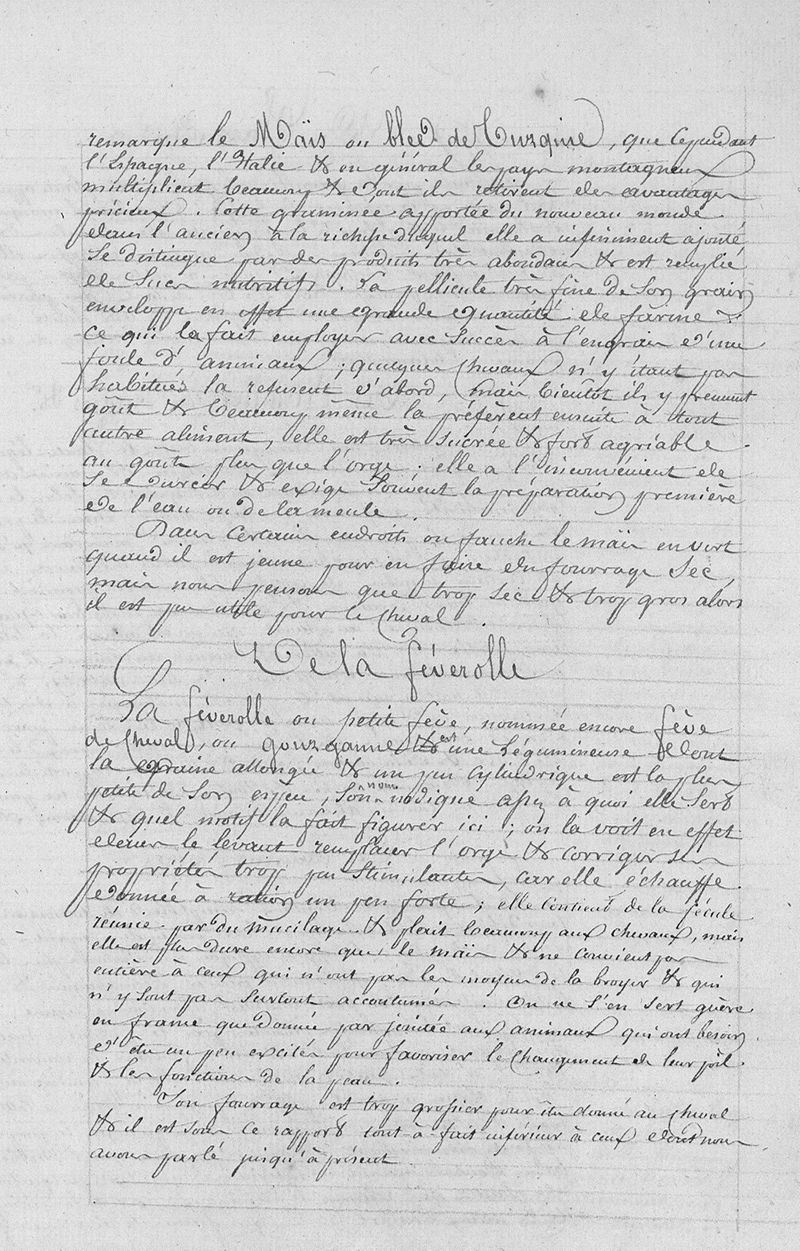 remarque le Maïs ou bled de Turquie, que cependant
l'Espagne, l'Italie & en général les pays montagneux
multiplient beaucoup & dont ils retirent des avantages
précieux. Cette graminée apportée du nouveau monde
dans l'ancien à la richesse duquel elle a infiniment ajouté
se distingue par des produits très abondans & est remplie
de sucs nutritifs. La pellicule très fine de son grain
enveloppe en effet une grande quantité de farine
ce qui la fait employer avec succès à l'engrais d'une
foule d'animaux; quelques chevaux n'y étant pas
habitués la refusent d'abord, mais bientôt ils y prennent
goût & beaucoup même la préfèrent ensuite à tout
autre aliment, elle est très sucrée & fort agréable
au goût plus que l'orge; elle a l'inconvénient de
se durcir & exige souvent la préparation première
de l'eau ou de la meule.
Dans certains endroits on fauche le maïs en vert
quand il est jeune pour en faire du fourrage sec,
mais nous pensons que trop sec & trop gros alors
il est peu utile pour le cheval.
De la féverolle
La féverolle ou petite fève, nommée encore fève
de cheval, ou gourganne & est une légumineuse dont
la graine allongée & un peu cylindrique est la plus
petite de son espèce, son nom indique assez à quoi elle sert
& quel motif la fait figurer ici; on la voit en effet
dans le levant remplacer l'orge & corriger ses
propriétés trop peu stimulantes, car elle échauffe
donnée à ration un peu forte; elle contient de la fécule
réunie par du mucilage & plait beaucoup aux chevaux, mais
elle est plus dure encore que le maïs & ne convient pas
entière à ceux qui n'ont pas les moyens de la broyer & qui
n'y sont pas surtout accoutumés. On ne s'en sert guère
en france que donnée par jointée aux animaux qui ont besoin
d'être un peu excités pour favoriser le changement de leur poil
& les fonctions de la peau.
Son fourrage est trop grossier pour être donné au cheval
& il est sous ce rapport tout à fait inférieur à ceux dont nous
avons parlé jusqu'à présent